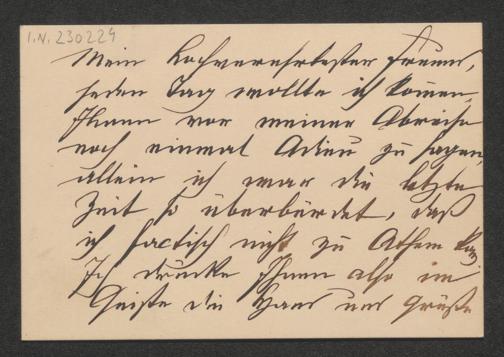 I.N. 230224
Mein hochverehrtester Freund,
jeden Tag wollte ich kommen,
Ihnen vor meiner Abreise
noch einmal Adieu zu sagen,
allein ich war die letzte
Zeit so überbürdet, daß
ich factisch nicht zu Athem kam.
Ich drücke Ihnen also im
Geiste die Hand und grüße